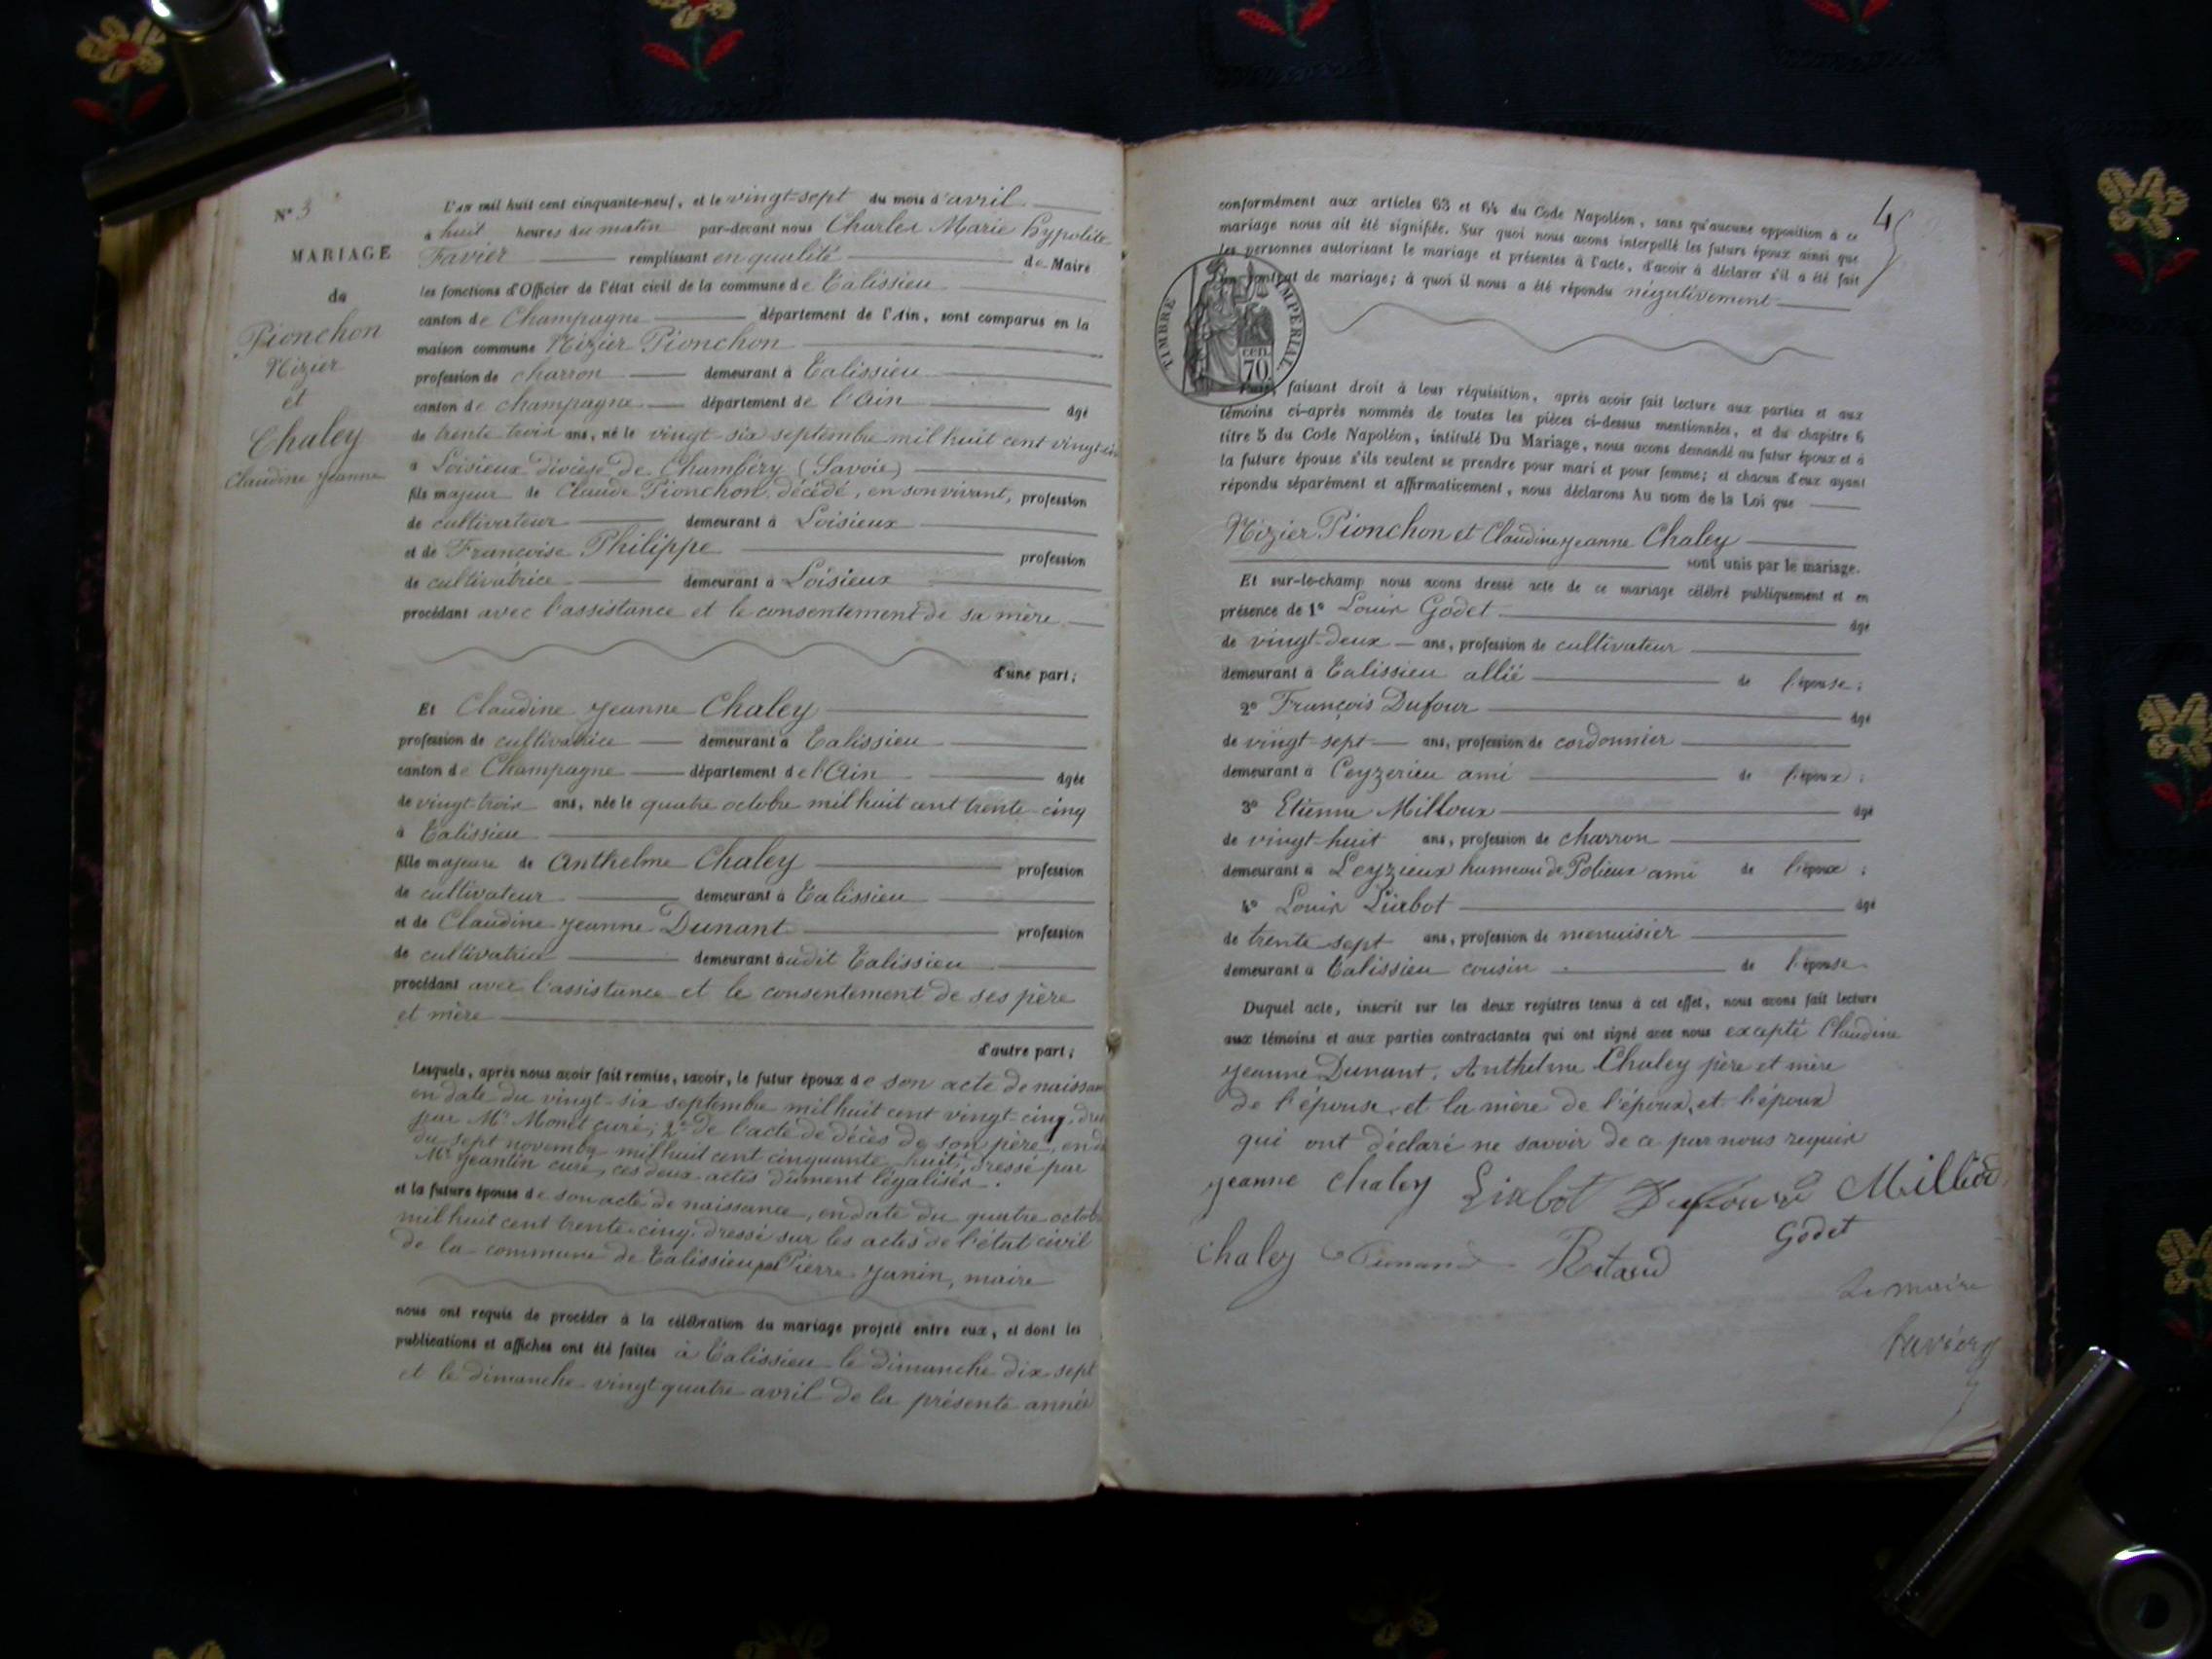 N° 3
MARIAGE
de
Pionchon
Nizier
et
Chaley
Claudine Jeanne
L'an mil huit cent cinquante-neuf, et le vingt-sept du mois d'avril
à huit heures du matin par-devant nous Charles Marie hypolite
Favier remplissant en qualité de Maire
les fonctions d'Officier de l'état civil de la commune de Talissieu
canton de Champagne département de l'Ain, sont comparus en la
maison commune Nizier Pionchon
profession de charron demeurant à Talissieu
canton de champagne département de l'Ain âgé
de trente trois ans, né le vingt-six septembre mil huit cent vingt-cinq
à Loisieux diocèse de Chambéry (Savoie)
fils majeur de Claude Pionchon, décédé, en son vivant, profession
de cultivateur demeurant à Loisieux
et de Françoise Philippe profession
de cultivatrice demeurant à Loisieux
procédant avec l'assistance et le consentement de sa mère
d'une part;
Et Claudine Jeanne Chaley
profession de cultivatrice demeurant à Talissieu
canton de Champagne département de l'Ain âgée
de vingt-trois ans, née le quatre octobre mil huit cent trente-cinq
à Talissieu
fille majeure de Anthelme Chaley profession
de cultivateur demeurant à Talissieu
et de Claudine Jeanne Dunant profession
de cultivatrice demeurant audit Talissieu
procédant avec l'assistance et le consentement de ses père
et mère
d'autre part;
Lesquels, après nous avoir fait remise, savoir, le futur époux de son acte de naissan
en date du vingt-six septembre mil huit cent vingt-cinq,
par Mr Monet curé; 2° de l'acte de décès de son père, en
du sept novembre mil huit cent cinquante huit, dressé par
Mr Jeantin curé, ces deux actes dument légalisés.
et la future épouse de son acte de naissance, en date du quatre octob
mil huit cent trente-cinq, dressé sur les actes de l'état civil
de la commune de Talissieu par Pierre Janin, maire
nous ont requis de procéder à la célébration du mariage projeté entre eux, et dont les
publications et affiches ont été faites à Talissieu le dimanche dix sept
et le dimanche vingt quatre avril de la présente année
4
conformément aux articles 63 et 64 du Code Napoléon, sans qu'aucune opposition à ce
mariage nous ait été signifiée. Sur quoi nous avons interpellé les futurs époux ainsi que
les personnes autorisant le mariage et présentes à l'acte, d'avoir à déclarer s'il a été fait
un contrat de mariage; à quoi il nous a été répondu négativement
TIMBRE IMPÉRIAL
70 cen.
Puis, faisant droit à leur réquisition, après avoir fait lecture aux parties et aux
témoins ci-après nommés de toutes les pièces ci-dessus mentionnées, et du chapitre 6
titre 5 du Code Napoléon, intitulé Du Mariage, nous avons demandé au futur époux et à
la future épouse s'ils veulent se prendre pour mari et pour femme; et chacun d'eux ayant
répondu séparément et affirmativement, nous déclarons Au nom de la Loi que
Nizier Pionchon et Claudine Jeanne Chaley
sont unis par le mariage.
Et sur-le-champ nous avons dressé acte de ce mariage célébré publiquement et en
présence de 1° Louis Godet âgé
de vingt-deux ans, profession de cultivateur
demeurant à Talissieu allié de l'épouse;
2° François Dufour âgé
de vingt-sept ans, profession de cordonnier
demeurant à Ceyzerieu ami de l'époux;
3° Etienne Millioux âgé
de vingt-huit ans, profession de charron
demeurant à Leyzieux hameau de Polieux ami de l'époux;
4° Louis Liabot âgé
de trente sept ans, profession de menuisier
demeurant à Talissieu cousin de l'épouse
Duquel acte, inscrit sur les deux registres tenus à cet effet, nous avons fait lecture
aux témoins et aux parties contractantes qui ont signé avec nous excepté Claudine
Jeanne Dunant, Anthelme Chaley père et mère
de l'épouse et la mère de l'époux, et l'époux
qui ont déclaré ne savoir de ce par nous requis
jeanne chaley Liabot Dufour Milliou
chaley Godet
Le maire
favier